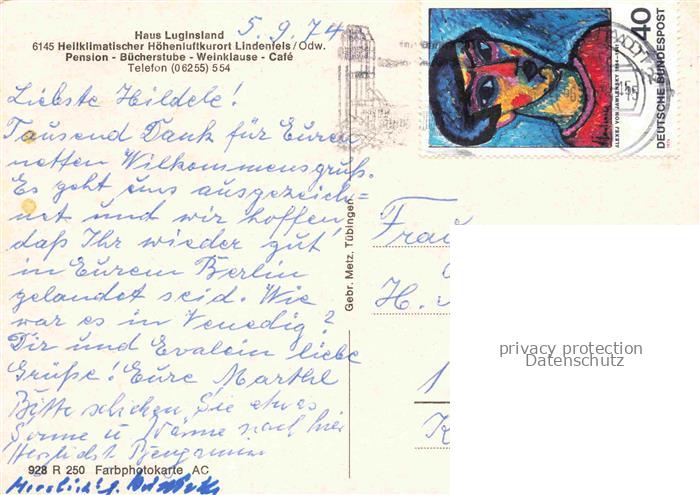 Haus Luginsland
5.9.74
6145 Heilklimatischer Höhenluftkurort Lindenfels/Odw.
Pension - Bücherstube - Weinklause - Café
Telefon (06255) 554
Liebste Hildele!
Tausend Dank für Euren
netten Wilkommensgruß.
Es geht uns ausgezeich=
net und wir hoffen,
daß Ihr wieder gut
in Eurem Berlin
gelandet seid. Wie
war es in Venedig?
Dir und Evalein liebe
Grüße! Eure Marthl
Bitte schicken Sie etwas
Sonne u Wärme nach hier
Herzlichst
928 R 250 Farbphotokarte AC
Gebr. Metz, Tübingen
ALEXEJ VON JAWLENSKY
DEUTSCHE BUNDESPOST
40
Frau
H.
1
K
privacy protection
Datenschutz